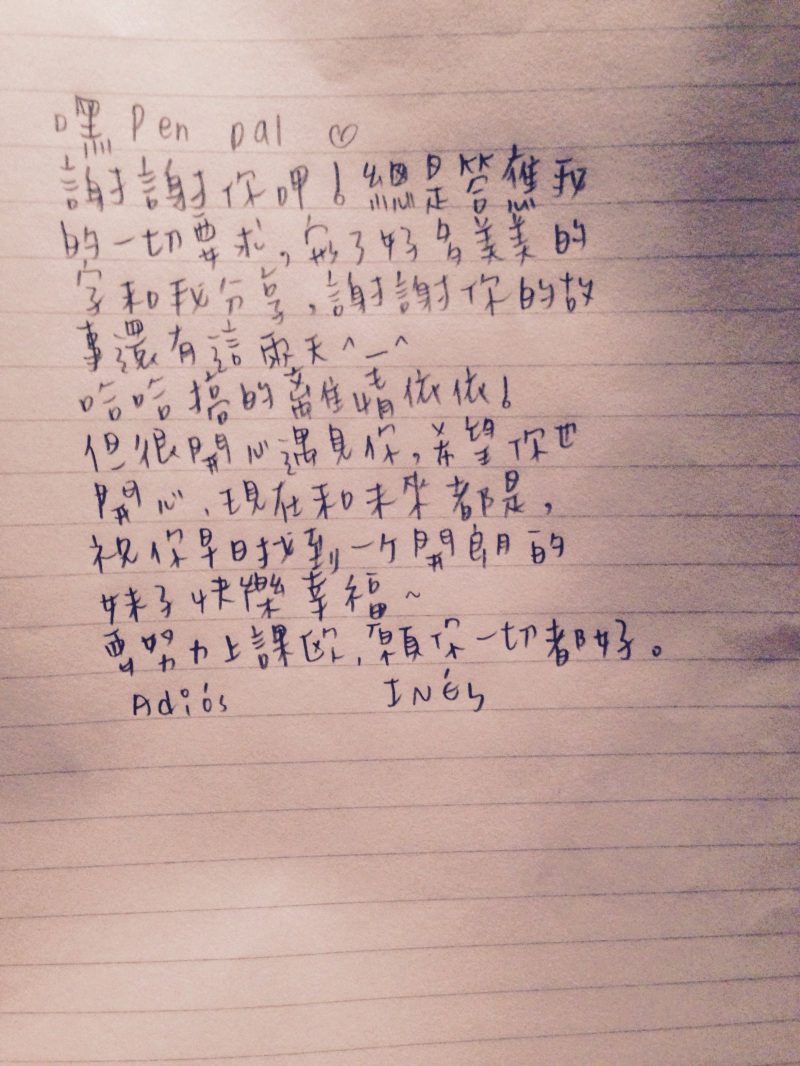 嘿 Pen pal ♡
謝謝你呷!總是答應我
的一切要求,寫了好多美美的
字和我分享,謝謝你的故
事還有這兩天^_^
哈哈搞的離情依依!
但很開心遇見你,希望你也
開心、現在和未來都是,
祝你早日找到一个開朗的
妹子快樂幸福~
要努力上課歐,願你一切都好。
Adiós INÉS